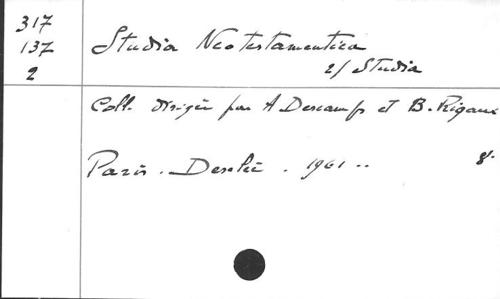 317
137
2
Studia Neotestamentica
2/ Studia
Coll. dirigée par A Descamps et B. Rigaux
Paris. Desclée. 1961 ..
8°